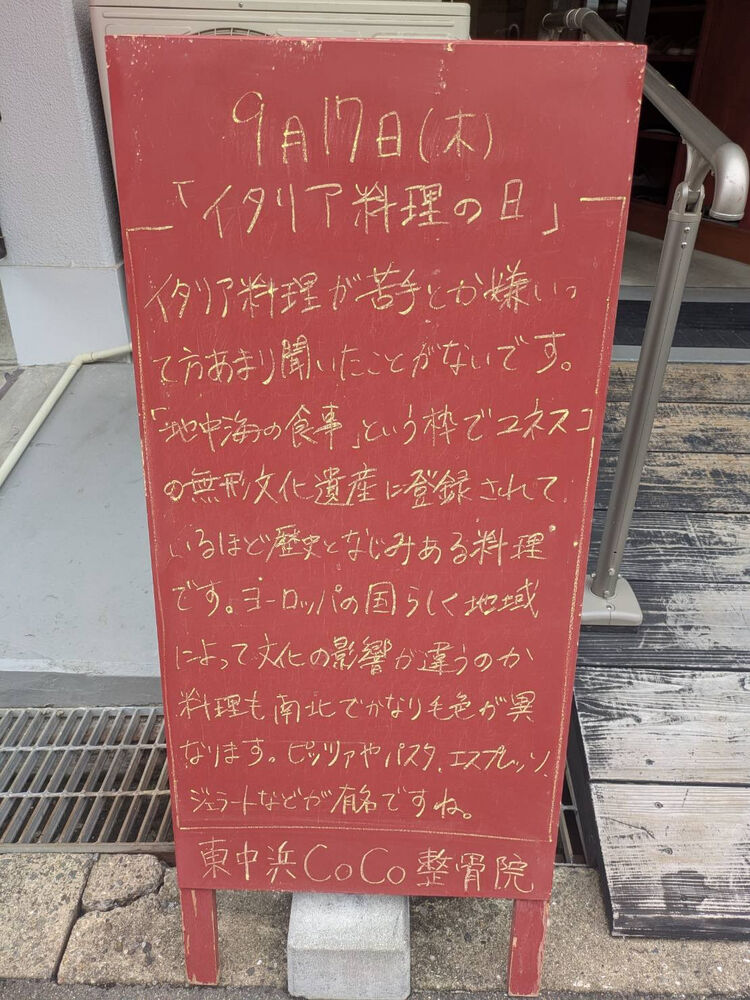 9月17日(木)
「イタリア料理の日」
イタリア料理が苦手とか嫌いっ
て方あまり聞いたことがないです。
「地中海の食事」という枠でユネスコ
の無形文化遺産に登録されて
いるほど歴史となじみある料理
です。ヨーロッパの国らしく地域
によって文化の影響が違うのか
料理も南北でかなり毛色が異
なります。ピッツァやパスタ、エスプレッソ、
ジェラートなどが有名ですね。
東中浜CoCo整骨院